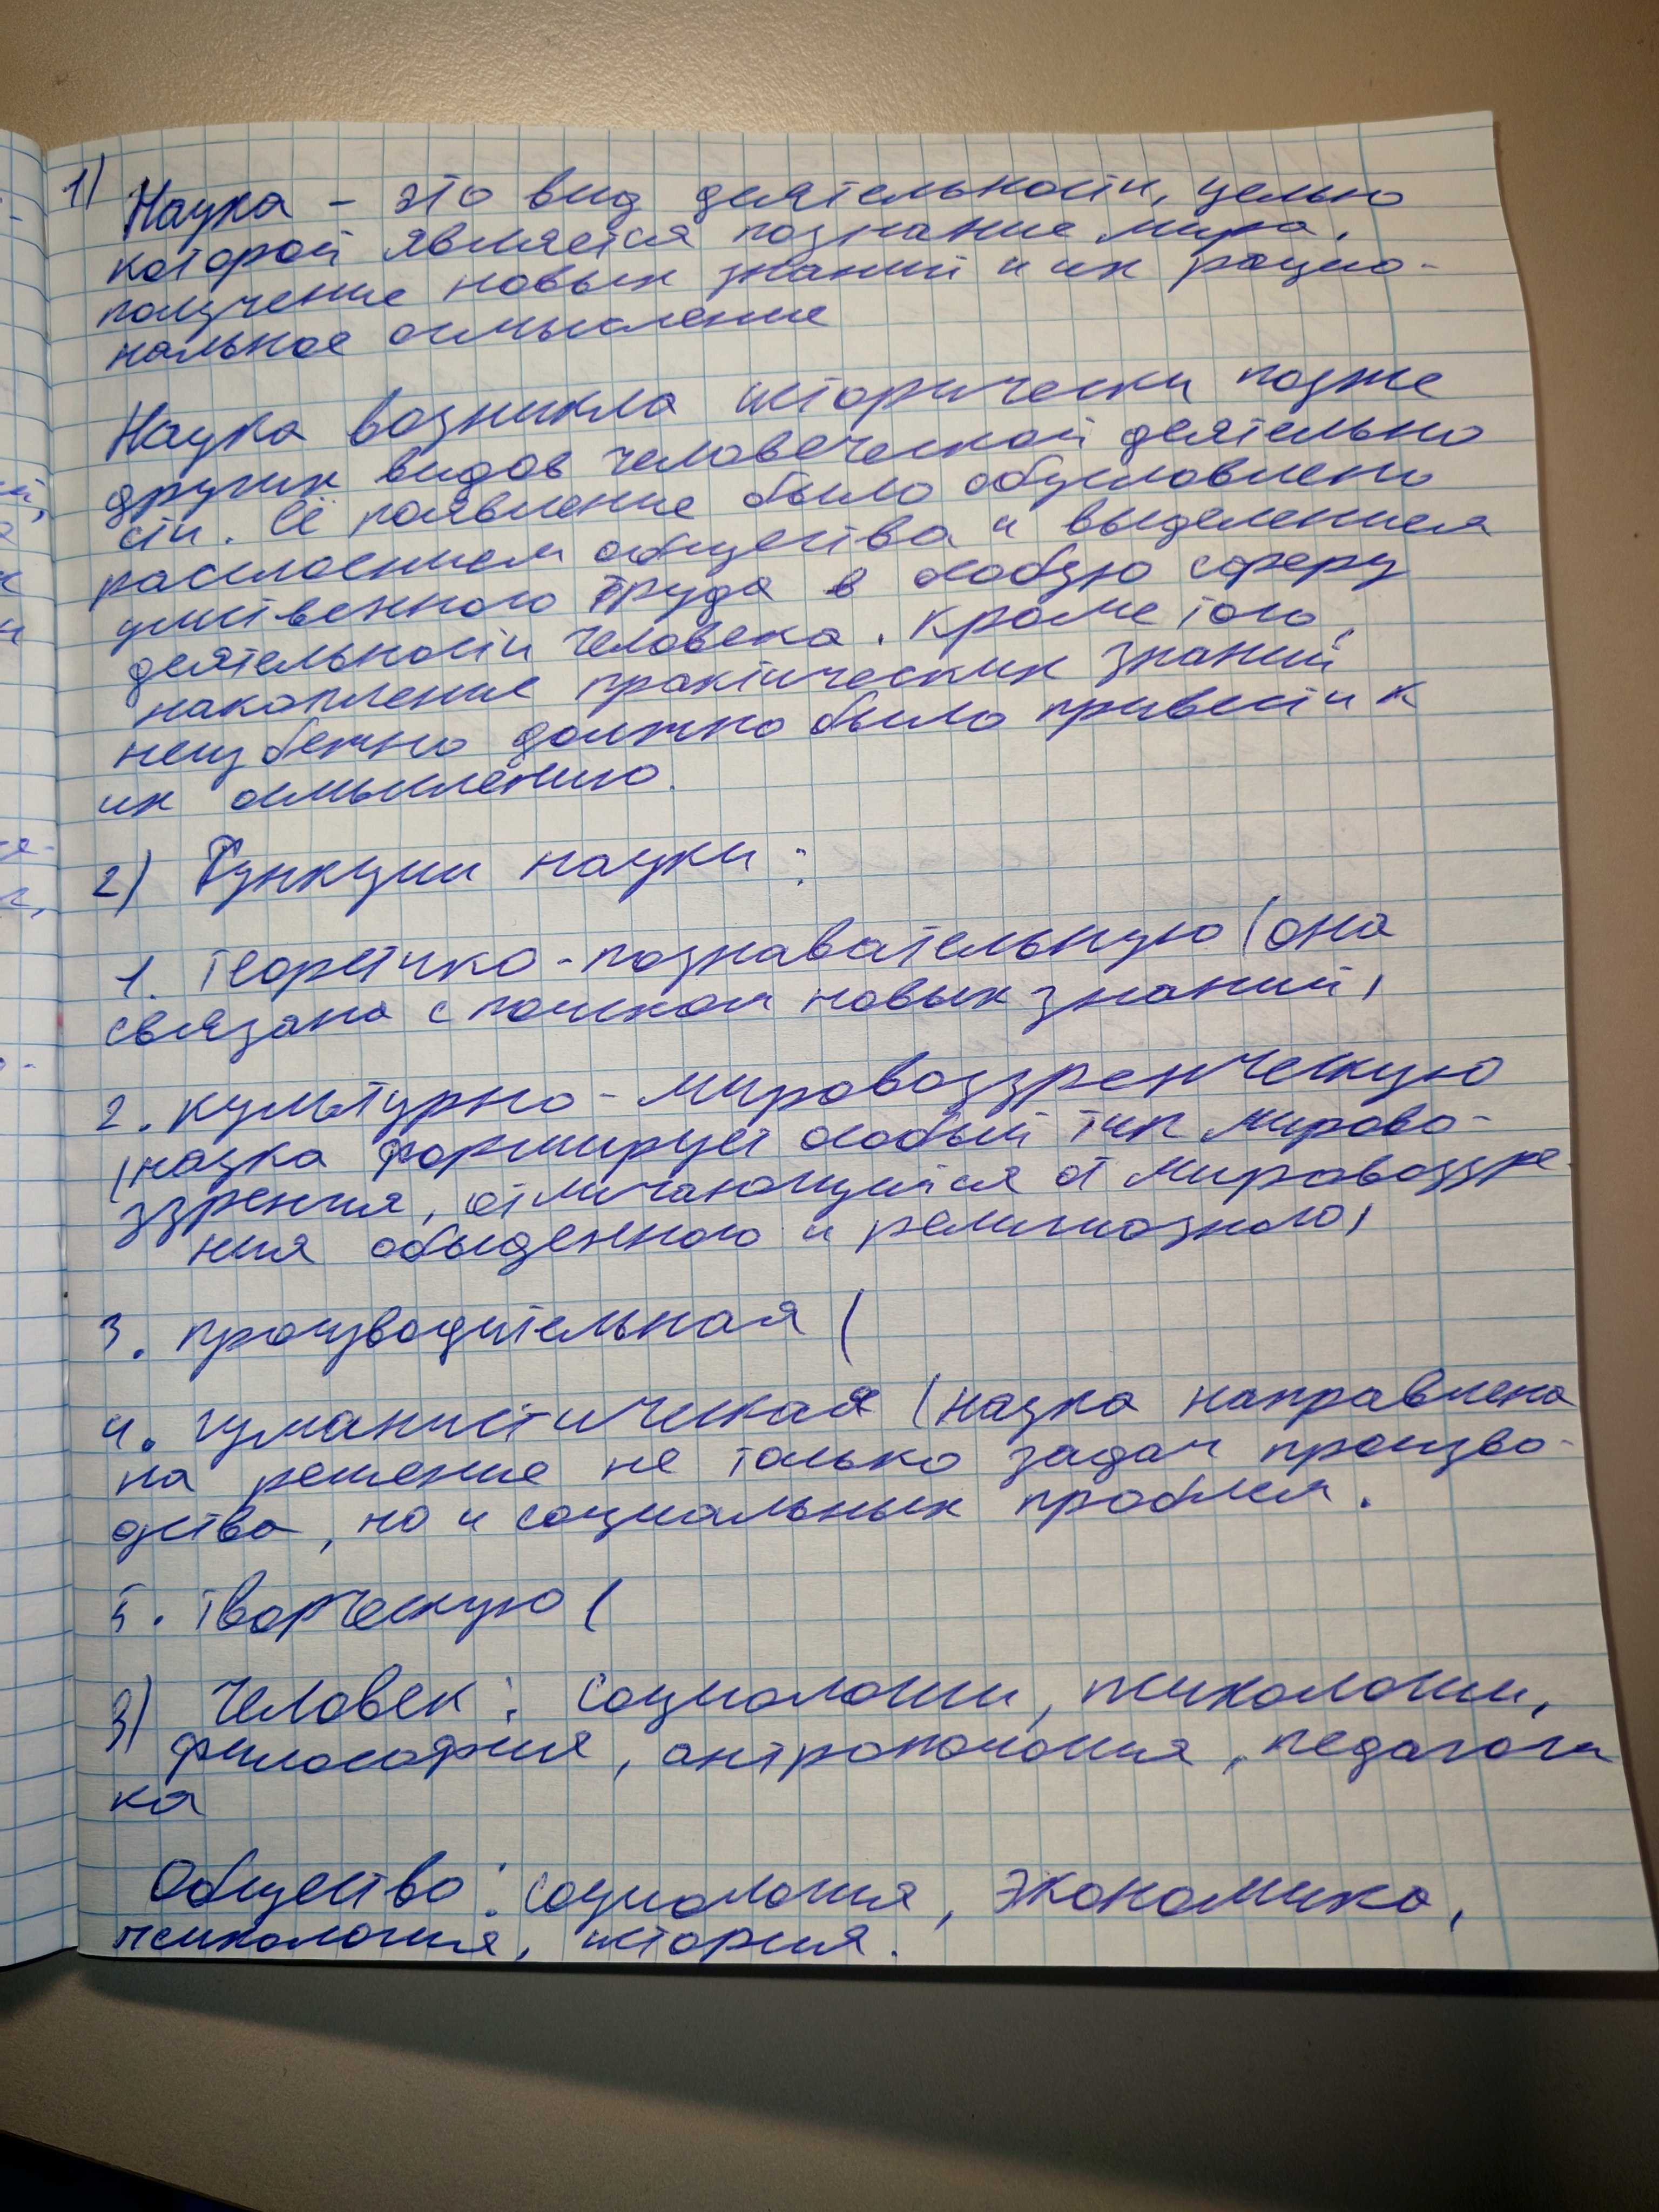 1) Наука – это вид деятельности, целью
которой является познание мира,
получение новых знаний и их рацио-
нальное осмысление
Наука возникла исторически позже
других видов человеческой деятельно
сти. Её появление было обусловлено
расслоением общества и выделением
умственного труда в особую сферу
деятельности человека. Кроме того,
накопление практических знаний
неизбежно должно было привести к
их осмыслению.
2) Функции науки:
1. теоретико-познавательную (она
связана с поиском новых знаний)
2. культурно-мировоззренческую
(наука формирует особый тип мирово-
ззрения, отличающийся от мировоззре
ния обыденного и религиозного)
3. производительная (
4. гуманистическая (наука направлена
на решение не только задач произво-
дства, но и социальных проблем.
5. творческую (
3) Человек: социологии, психологии,
философия, антропология, педагоги
ка
Общество: социология, экономика,
психология, история.